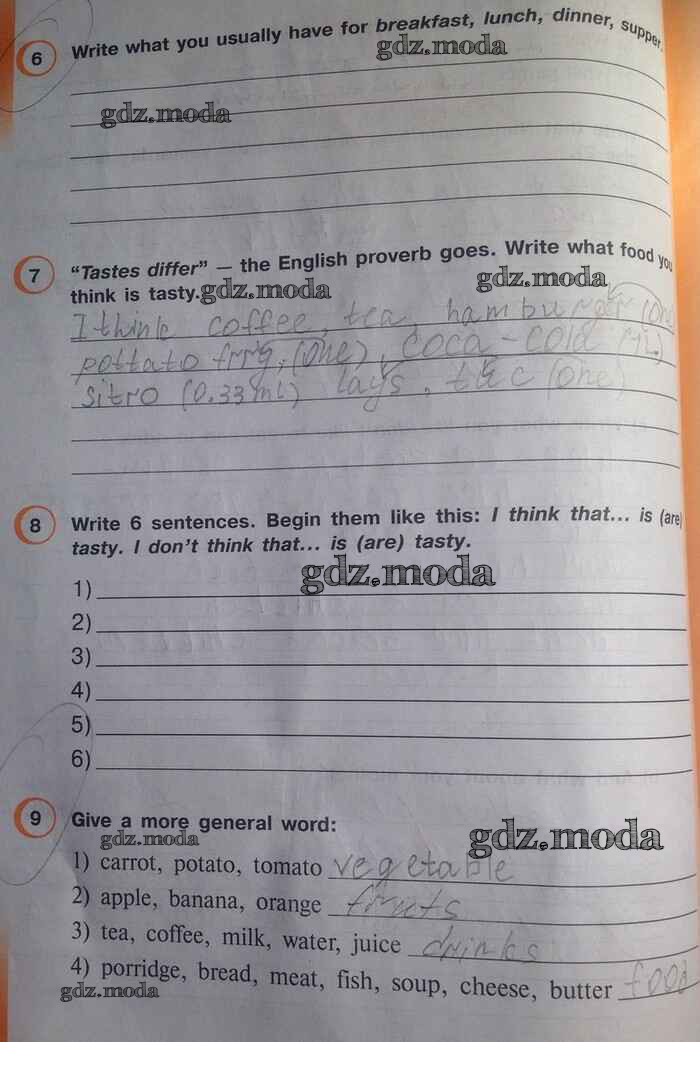 6 Write what you usually have for breakfast, lunch, dinner, supper.
gdz.moda
gdz.moda
7 “Tastes differ” — the English proverb goes. Write what food you
think is tasty. gdz.moda gdz.moda
I think coffee, tea, hamburger (one
pottato frrg, (one), coca-cola (1L)
sitro (0.33ml) lays, (one)
8 Write 6 sentences. Begin them like this: I think that... is (are)
tasty. I don’t think that... is (are) tasty.
gdz.moda
1)
2)
3)
4)
5)
6)
9 Give a more general word:
gdz.moda gdz.moda
1) carrot, potato, tomato vegetable
2) apple, banana, orange fruets
3) tea, coffee, milk, water, juice drinks
4) porridge, bread, meat, fish, soup, cheese, butter food
gdz.moda